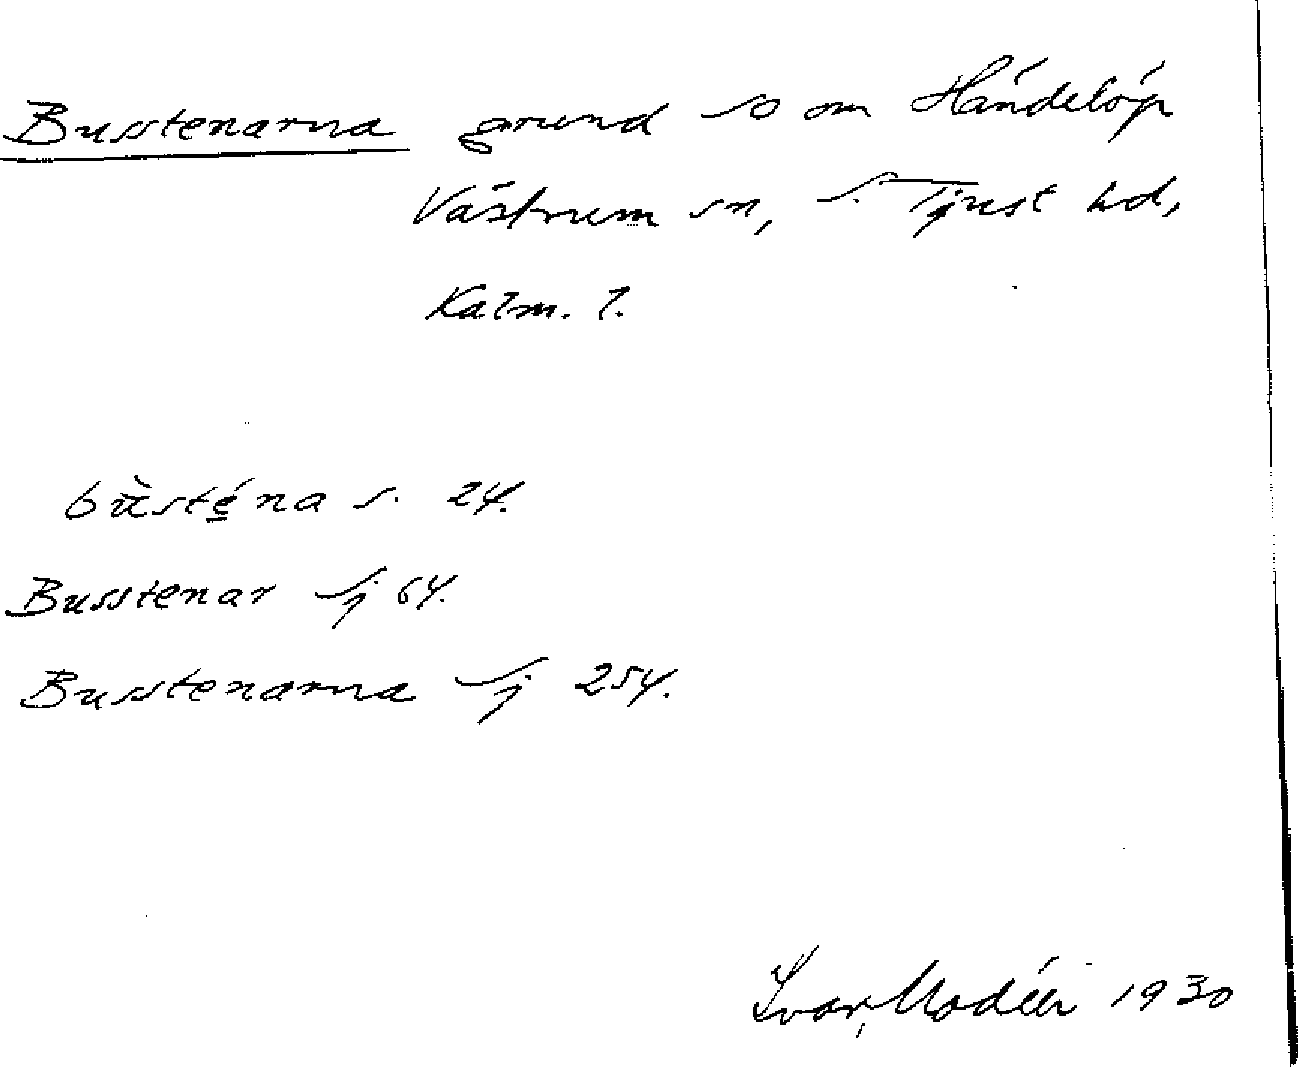 Busstenarna grund so om Händelöp
Västrum sn, S. Tjust hd,
Kalm. l.
bùsté̱na s. 24.
Busstenar Sj 64.
Busstenarna Sj 254.
Ivar Modéer 1930